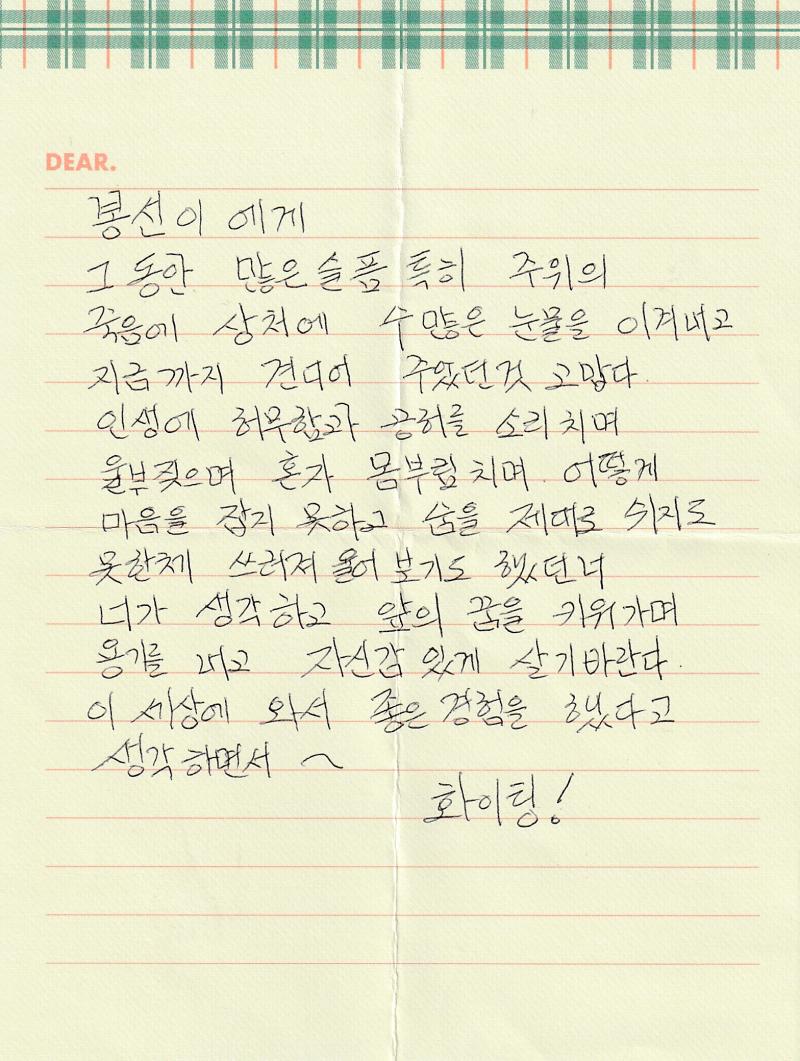 DEAR.
봉선이 에게
그 동안 많은 슬픔 특히 주위의
죽음에 상처에 수 많은 눈물을 이겨내고
지금까지 견디어 주었던것 고맙다.
인생에 허무함과 공허를 소리치며
울부짖으며 혼자 몸부림 치며. 어떻게
마음을 잡지 못하고 숨을 제대로 쉬지도
못한체 쓰러져 울어 보기도 했던너
너가 생각하고 앞의 꿈을 키워가며
용기를 내고 자신감 있게 살기바란다.
이 세상에 와서 좋은 경험을 했다고
생각하면서 ~
화이팅!